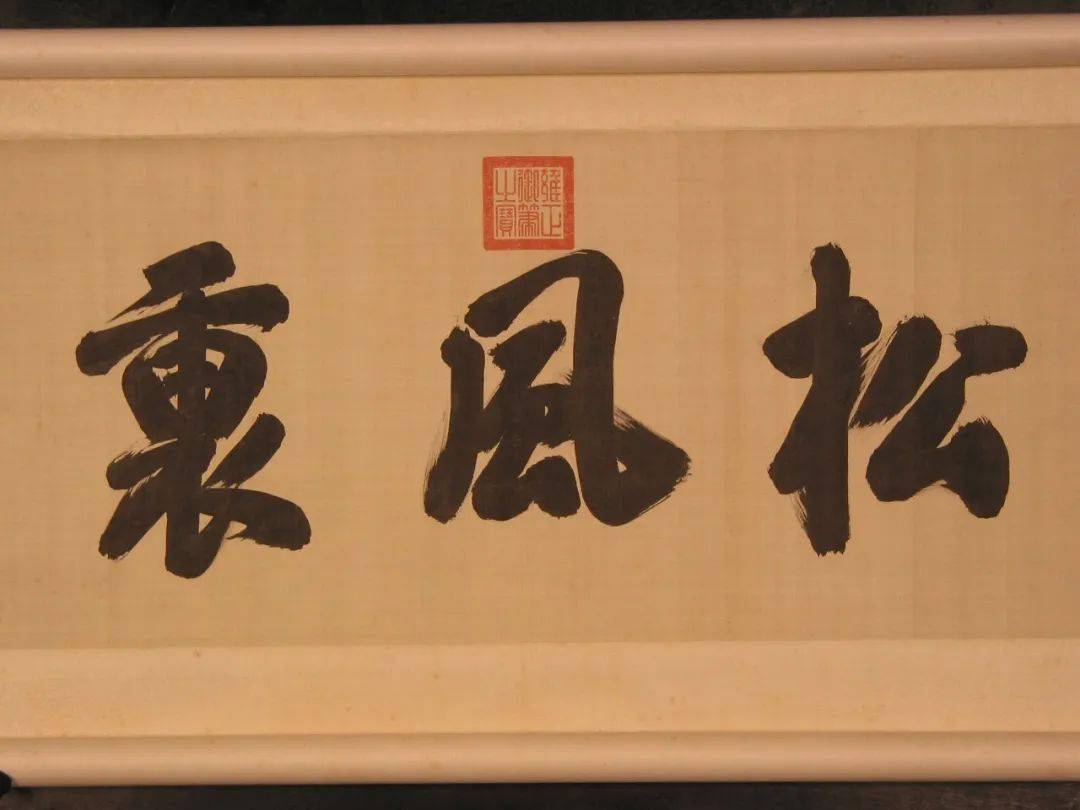 雍正御筆之寶
松風裏